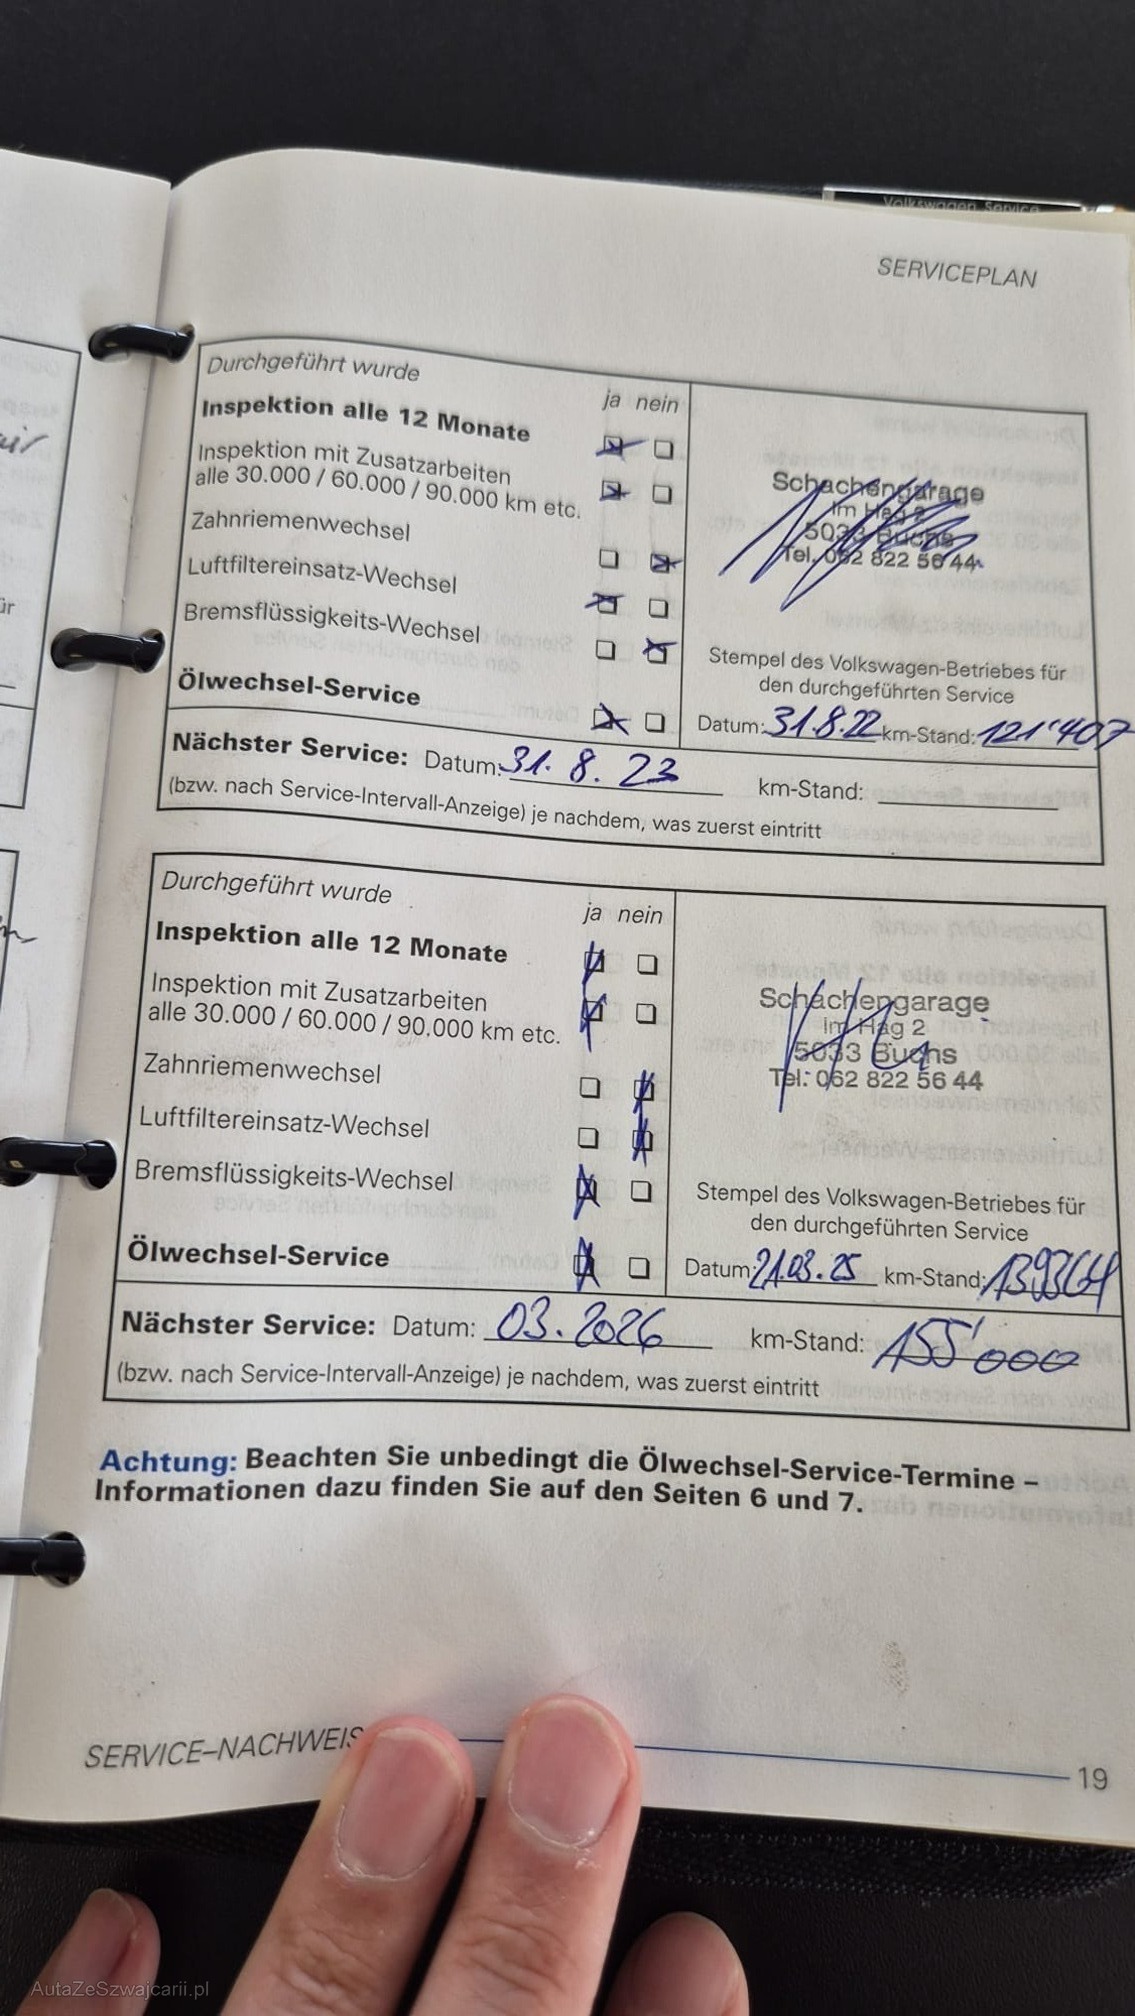 Volkswagen Service
SERVICEPLAN
Durchgeführt wurde
ja nein
Inspektion alle 12 Monate
Inspektion mit Zusatzarbeiten
alle 30.000 / 60.000 / 90.000 km etc.
Zahnriemenwechsel
Luftfiltereinsatz-Wechsel
Bremsflüssigkeits-Wechsel
Ölwechsel-Service
Schachengarage
Im Hag 2
5033 Buchs
Tel. 062 822 56 44
Stempel des Volkswagen-Betriebes für
den durchgeführten Service
Datum: 31.8.22 km-Stand: 121'407
Nächster Service: Datum: 31. 8. 23 km-Stand:
(bzw. nach Service-Intervall-Anzeige) je nachdem, was zuerst eintritt
Durchgeführt wurde
ja nein
Inspektion alle 12 Monate
Inspektion mit Zusatzarbeiten
alle 30.000 / 60.000 / 90.000 km etc.
Zahnriemenwechsel
Luftfiltereinsatz-Wechsel
Bremsflüssigkeits-Wechsel
Ölwechsel-Service
Schachengarage
Im Hag 2
5033 Buchs
Tel.: 062 822 56 44
Stempel des Volkswagen-Betriebes für
den durchgeführten Service
Datum: 21.03.25 km-Stand: 139364
Nächster Service: Datum: 03.2026 km-Stand: 155'000
(bzw. nach Service-Intervall-Anzeige) je nachdem, was zuerst eintritt
Achtung: Beachten Sie unbedingt die Ölwechsel-Service-Termine –
Informationen dazu finden Sie auf den Seiten 6 und 7.
SERVICE–NACHWEIS
19
AutaZeSzwajcarii.pl